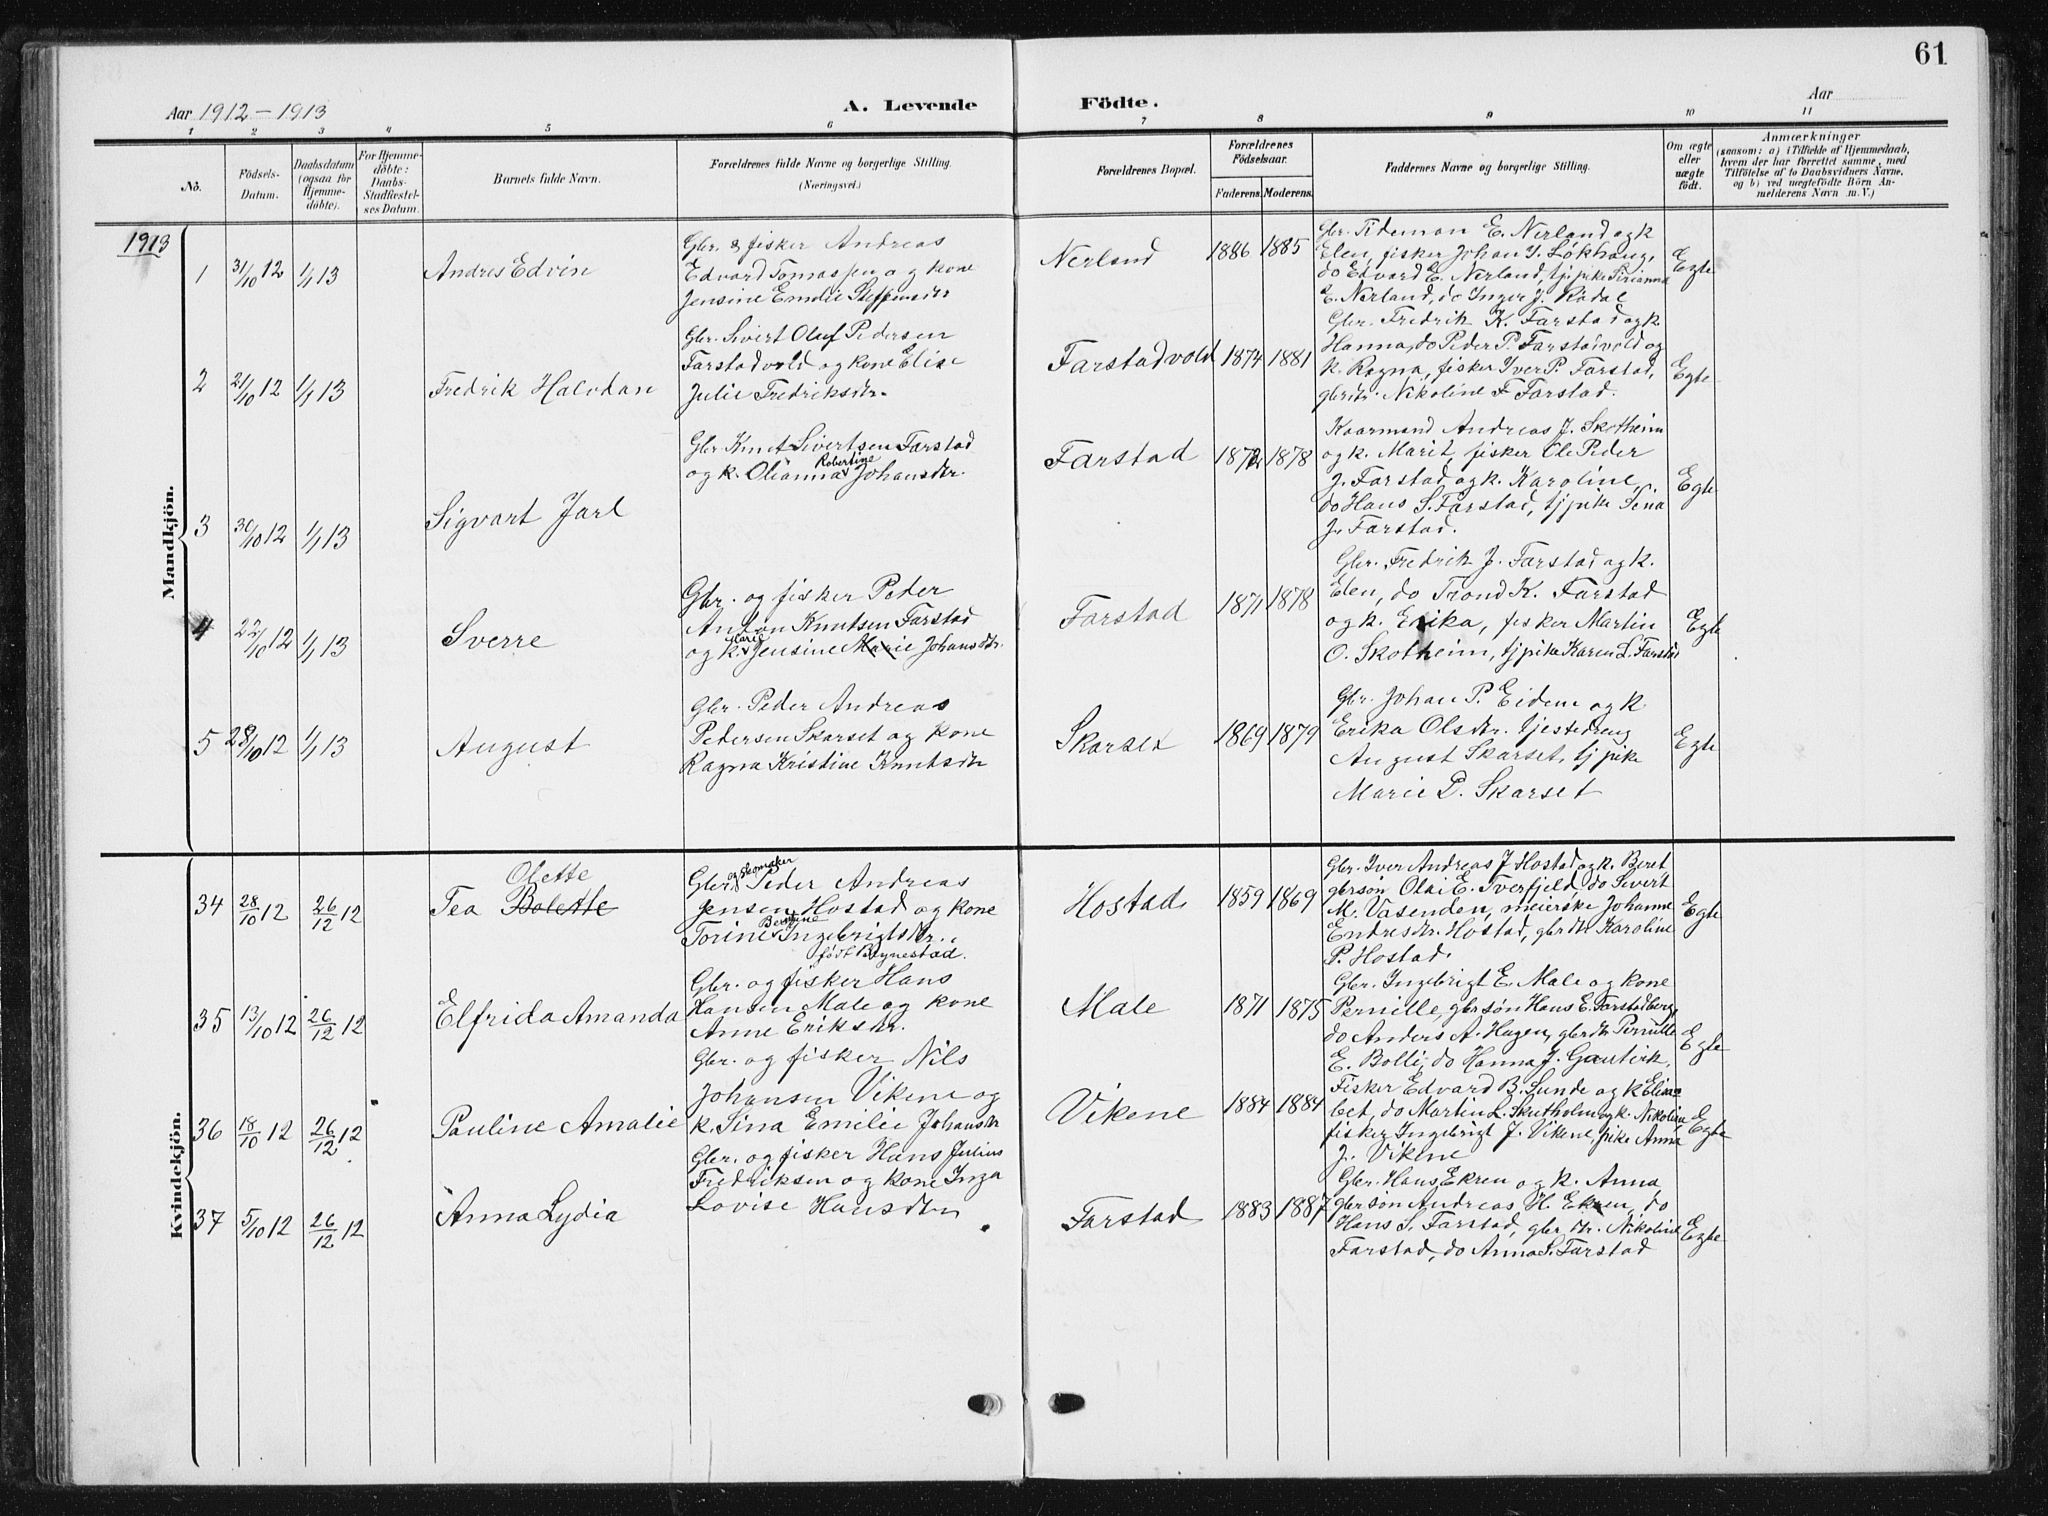 61
Aar 1912–1913
A. Levende
Födte.
Aar
1 2 3 4 5 6 7 8 9 10 11
No.
Födsels-
Datum.
Daabsdatum
(ogsaa for
Hjemme-
döbte).
For Hjemme-
döbte:
Daabs-
Stadfæstel-
ses Datum.
Barnets fulde Navn.
Forældrenes fulde Navne og borgerlige Stilling.
(Næringsvei.)
Forældrenes Bopæl.
Forældrenes
Födselsaar.
Faderens.
Moderens.
Faddernes Navne og borgerlige Stilling.
Om ægte
eller
uægte
födt.
Anmærkninger
(saasom: a) i Tilfælde af Hjemmedaab,
hvem der har forrettet samme, med
Tilföielse af to Daabsvidners Navne,
og b) ved uægtefödte Börn An-
melderens Navn m. V.)
Mandkjön.
1913
1
31/10 12
1/1 13
Andres Edvin
Gbr. & fisker Andreas
Edvard Tomassen og kone
Jensine Emilie Steffensdtr
Nerland
1886
1885
Gbr. Tideman E. Nerland og k
Elen, fisker Johan J. Løkhaug,
do Edvard E. Nerland, tj. pike Sirianna
E. Nerland, do Inger J. Rødal
Egte
2
21/10 12
1/1 13
Fredrik Halvdan
Gbr. Sivert Oluf Pedersen
Farstadvold og kone Elise
Julie Fredriksdtr.
Farstadvold
1874
1881
Gbr. Fredrik K. Farstad og k
Hanna, do Peder P. Farstadvold og
k. Ragna, fisker Iver P. Farstad,
gbrdtr. Nikoline F Farstad.
Egte
3
30/10 12
1/1 13
Sigvart Jarl
Gbr Knut Sivertsen Farstad
Robertine
og k. Olianna Johansdtr.
Farstad
1872
1878
Kaarmand Andreas J. Skotheim
og k. Marit, fisker Ole Peder
J. Farstad og k. Karoline,
do Hans S. Farstad, tj pike Sina
J. Farstad.
Egte
4
22/10 12
1/1 13
Sverre
Gbr. og fisker Peder
Anton Knutsen Farstad
Marie
og k. Jensine Marie Johansdtr.
Farstad
1871
1878
Gbr. Fredrik J. Farstad og k.
Elen, do Trond K. Farstad
og k. Erika, fisker Martin
O. Skotheim, tj pike Karen L. Farstad
Egte
5
28/10 12
1/1 13
August
Gbr. Peder Andreas
Pedersen Skarset og kone
Ragna Kristine Knutsdtr
Skarset
1869
1879
Gbr. Johan P. Eidem og k
Erika Olsdtr. tjestedreng
August Skarset, tj pike
Marie P. Skarset
Egte
Kvindekjön.
34
28/10 12
26/12 12
Olette
Tea Bolette
og skomaker
Gbr. Peder Andreas
Jensen Hostad og kone
Torine Ingebrigtsdtr.
født Brynestad.
Hostad
1859
1869
Gbr. Iver Andreas J Hostad og k. Beret
gbrsøn Olai E. Tverfjeld, do Sivert
M. Vasenden, meierske Johanne
Endresdtr. Hostad, gbrdtr Karoline
P. Hostad.
Egte
35
13/10 12
26/12 12
Elfrida Amanda
Gbr. og fisker Hans
Hansen Male og kone
Anne Eriksdtr.
Male
1871
1875
Gbr. Ingebrigt E. Male og kone
Pernille, gbrsøn Hans E. Farstadberg,
do Anders A. Hagen, gbrdtr Pernille
E. Bolli, do Hanna J. Gautvik.
Egte
36
18/10 12
26/12 12
Pauline Amalie
Gbr. og fisker Nils
Johansen Vikene og
k. Sina Emilie Johansdtr
Vikene
1884
1884
Fisker Edvard B. Sunde og k Elisa-
bet, do Martin L. Skutholm og k. Nikolina
fisker Ingebrigt J. Vikene, pike Anna
J. Vikene
Egte
37
5/10 12
26/12 12
Anna Lydia
Gbr. og fisker Hans Julius
Fredriksen og kone Inga
Lovise Hansdtr
Farstad
1883
1887
Gbr. Hans Ekren og k. Anna
gbrsøn Andreas H. Ekren, do
Hans S. Farstad, gbr dtr. Nikoline
Farstad, do Anna S. Farstad
Egte